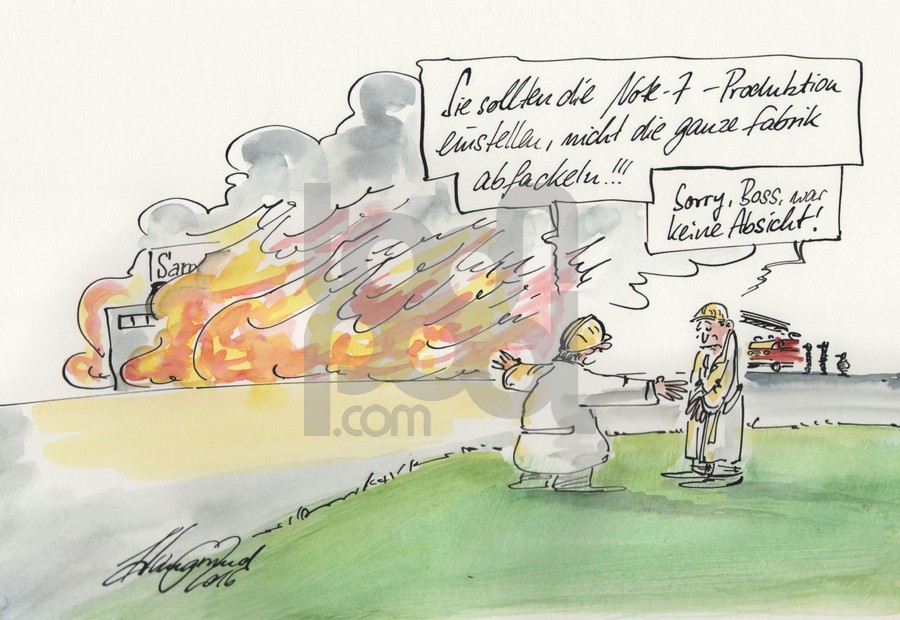 Sie sollten die Note-7-Produktion
einstellen, nicht die ganze Fabrik
abfackeln..!!!
Sorry, Boss, war
keine Absicht!
Sam
.com
2016